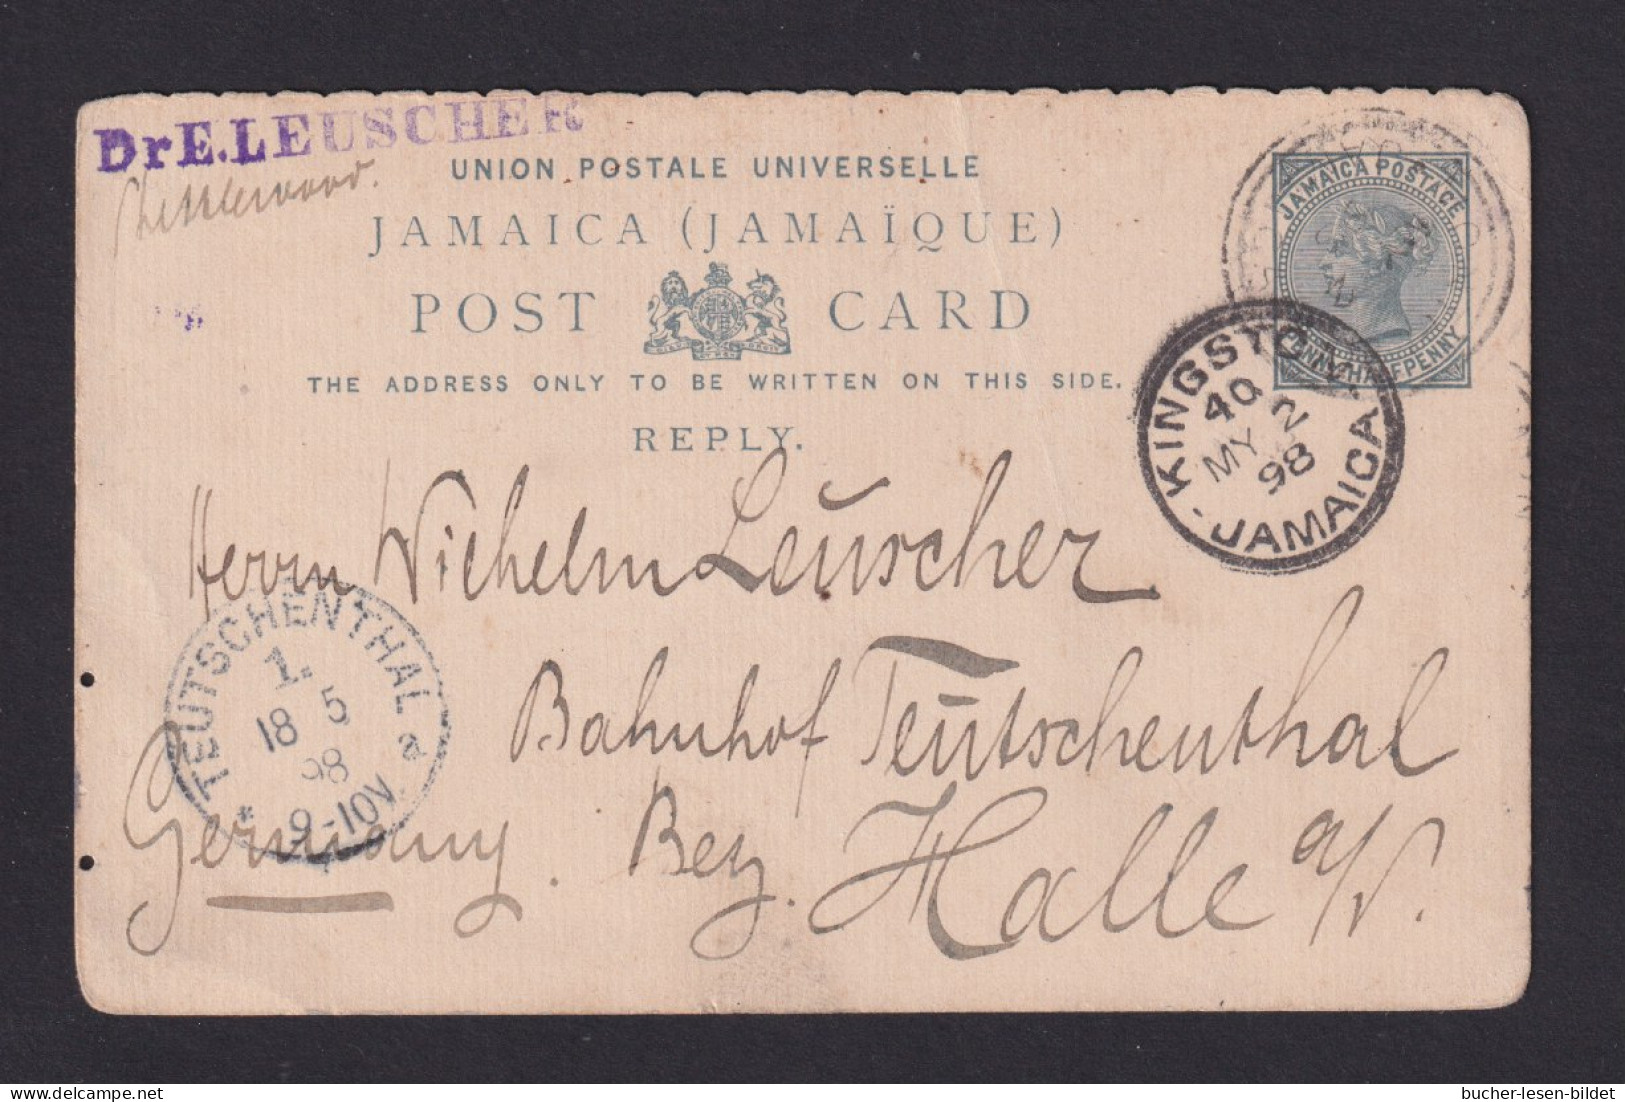 Dr E. LEUSCHER
Shettlewood.
UNION POSTALE UNIVERSELLE
JAMAICA (JAMAÏQUE)
POST CARD
THE ADDRESS ONLY TO BE WRITTEN ON THIS SIDE.
REPLY.
JAMAICA POSTAGE
HALFPENNY
KINGSTON
40 2
MY
98
- JAMAICA -
Herrn Wilhelm Leuscher
Bahnhof Teutschenthal
Bez. Halle a/S.
Germany.
TEUTSCHENTHAL a
1.
18 5
98
* 9-10V.
bucher-lesen-bildet